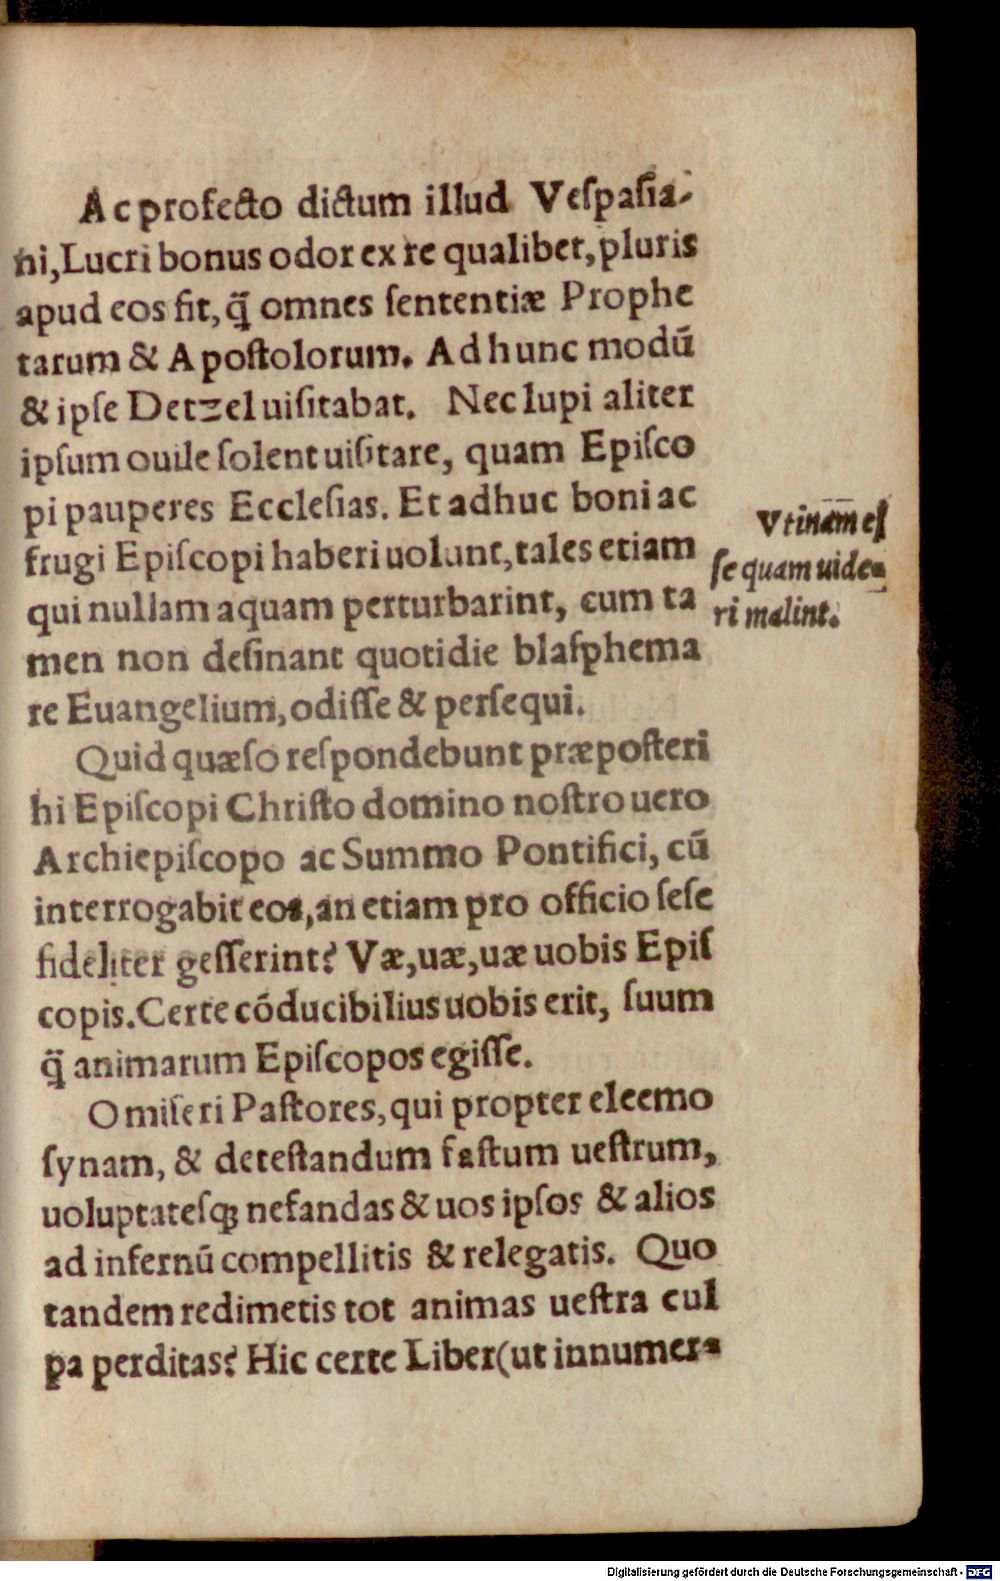 Ac profecto dictum illud Veſpaſia-
ni, Lucri bonus odor ex re qualibet, pluris
apud eos fit, q̃ omnes ſententiæ Prophe
tarum & Apoſtolorum. Ad hunc modũ
& ipſe Detzel uiſitabat. Nec lupi aliter
ipſum ouile ſolent uiſitare, quam Epiſco
pi pauperes Eccleſias. Et adhuc boni ac
frugi Epiſcopi haberi uolunt, tales etiam
qui nullam aquam perturbarint, cum ta
men non deſinant quotidie blaſphema
re Euangelium, odiſſe & perſequi.
Vtinam eſ
ſe quam uide-
ri malint.
Quid quæſo reſpondebunt præpoſteri
hi Epiſcopi Chriſto domino noſtro uero
Archiepiſcopo ac Summo Pontifici, cũ
interrogabit eos, an etiam pro officio ſeſe
fideliter geſſerint? Væ, uæ, uæ uobis Epiſ
copis. Certe cõducibilius uobis erit, ſuum
q̃ animarum Epiſcopos egiſſe.
O miſeri Paſtores, qui propter eleemo
ſynam, & deteſtandum faſtum ueſtrum,
uoluptateſq; nefandas & uos ipſos & alios
ad infernũ compellitis & relegatis. Quo
tandem redimetis tot animas ueſtra cul
pa perditas? Hic certe Liber (ut innumer-
Digitalisierung gefördert durch die Deutsche Forschungsgemeinschaft - DFG